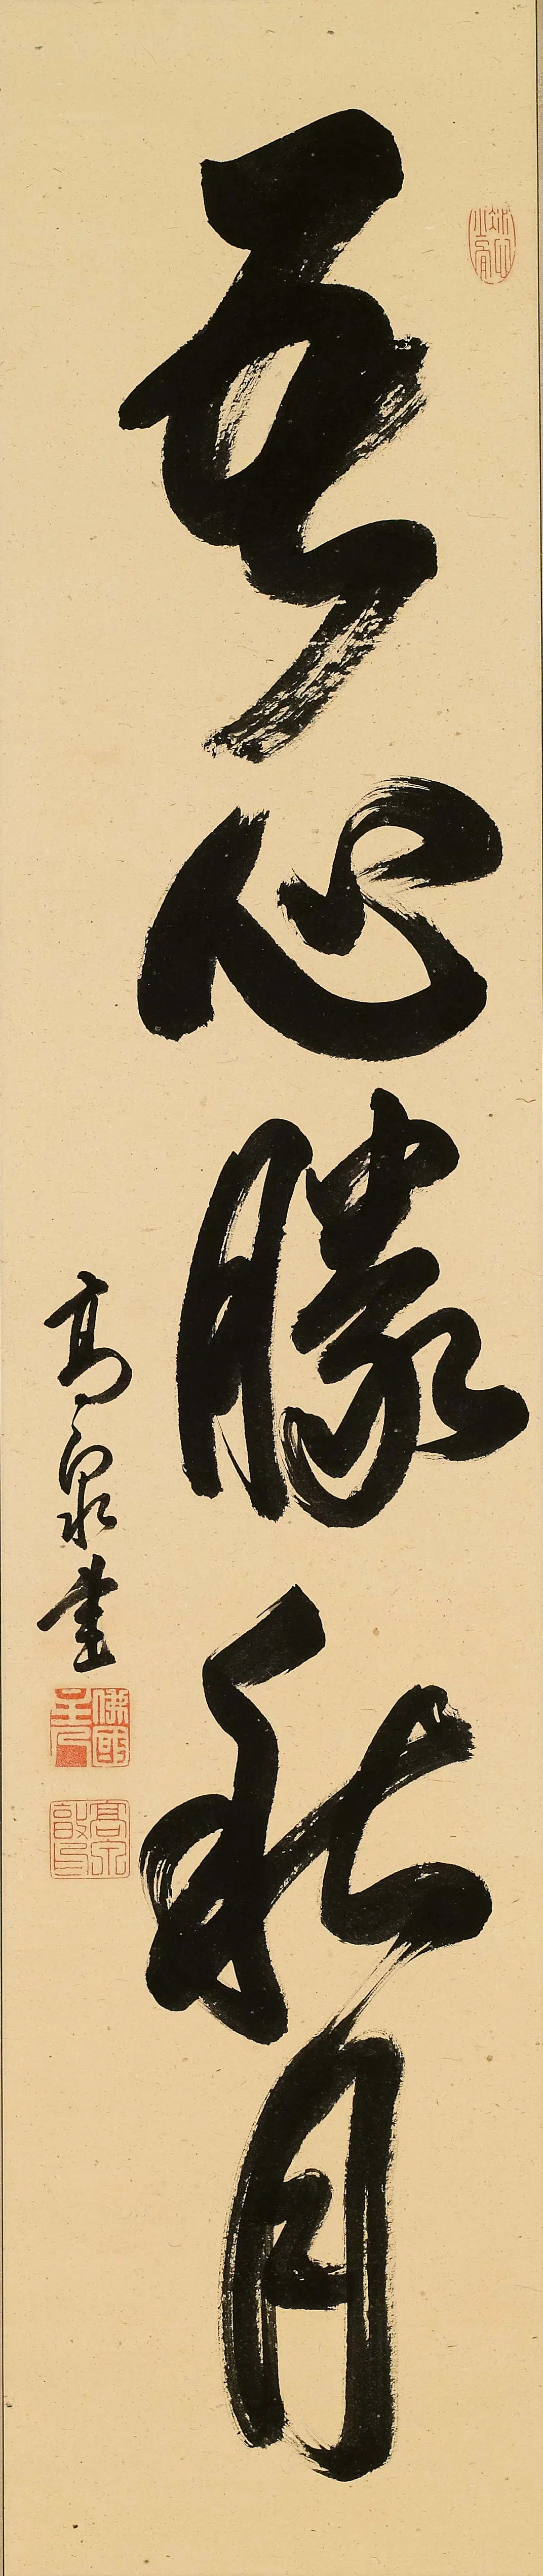 吾心勝秋月
高泉書